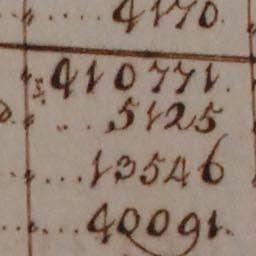 ....4170.
410771.
...5125
....13546
....40091.